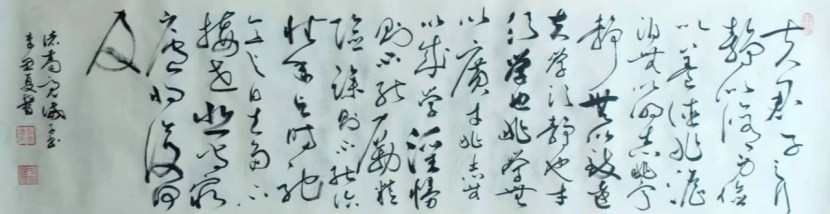 夫君子之行
靜以修身儉
以養德非澹
泊無以明志非寧
靜無以致遠
夫學須靜也才
須學也非學無
以廣才非志無
以成學淫慢
則不能勵精
險躁則不能治
性年与時馳
意与日去多不
接世悲守窮
廬將復何
及
諸葛亮誡子書
辛丑夏書